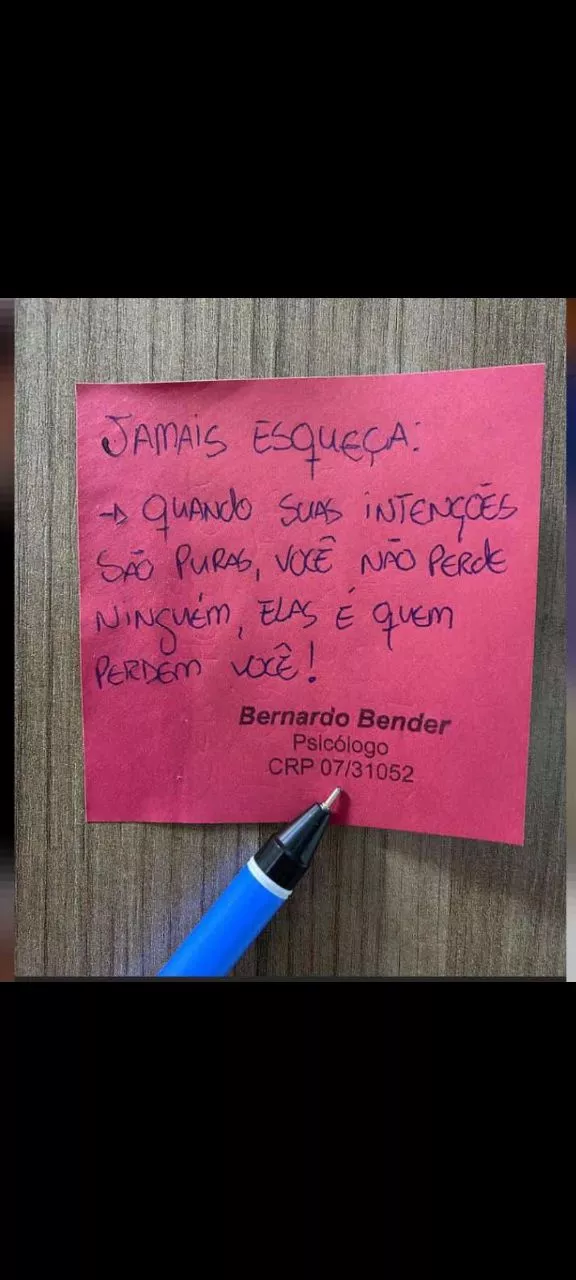 JAMAIS ESQUEÇA:
→ QUANDO SUAS INTENÇÕES
SÃO PURAS, VOCÊ NÃO PERDE
NINGUÉM, ELAS É QUEM
PERDEM VOCÊ!
Bernardo Bender
Psicólogo
CRP 07/31052